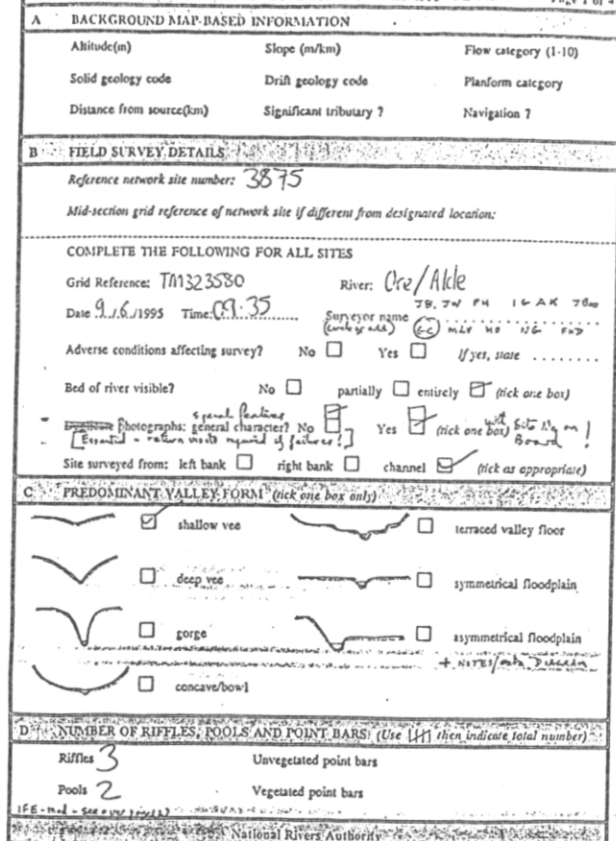 Page 1 of 4
A BACKGROUND MAP-BASED INFORMATION
Altitude(m) Slope (m/km) Flow category (1-10)
Solid geology code Drift geology code Planform category
Distance from source(km) Significant tributary ? Navigation ?
B FIELD SURVEY DETAILS
Reference network site number: 3875
Mid-section grid reference of network site if different from designated location:
COMPLETE THE FOLLOWING FOR ALL SITES
Grid Reference: TM323580 River: Ore/Alde
JB JW PH IG AK
Date 9/6/1995 Time: 09:35 Surveyor name
Adverse conditions affecting survey? No Yes If yes, state ........
Bed of river visible? No partially entirely (tick one box)
special features
Photographs: general character? No Yes (tick one box) with Site No on Board!
[Essential - return visits required if failures!]
Site surveyed from: left bank right bank channel (tick as appropriate)
C PREDOMINANT VALLEY FORM (tick one box only)
shallow vee terraced valley floor
deep vee symmetrical floodplain
gorge asymmetrical floodplain
+ NOTES
concave/bowl
D NUMBER OF RIFFLES, POOLS AND POINT BARS (Use then indicate total number)
Riffles 3 Unvegetated point bars
Pools 2 Vegetated point bars
National Rivers Authority